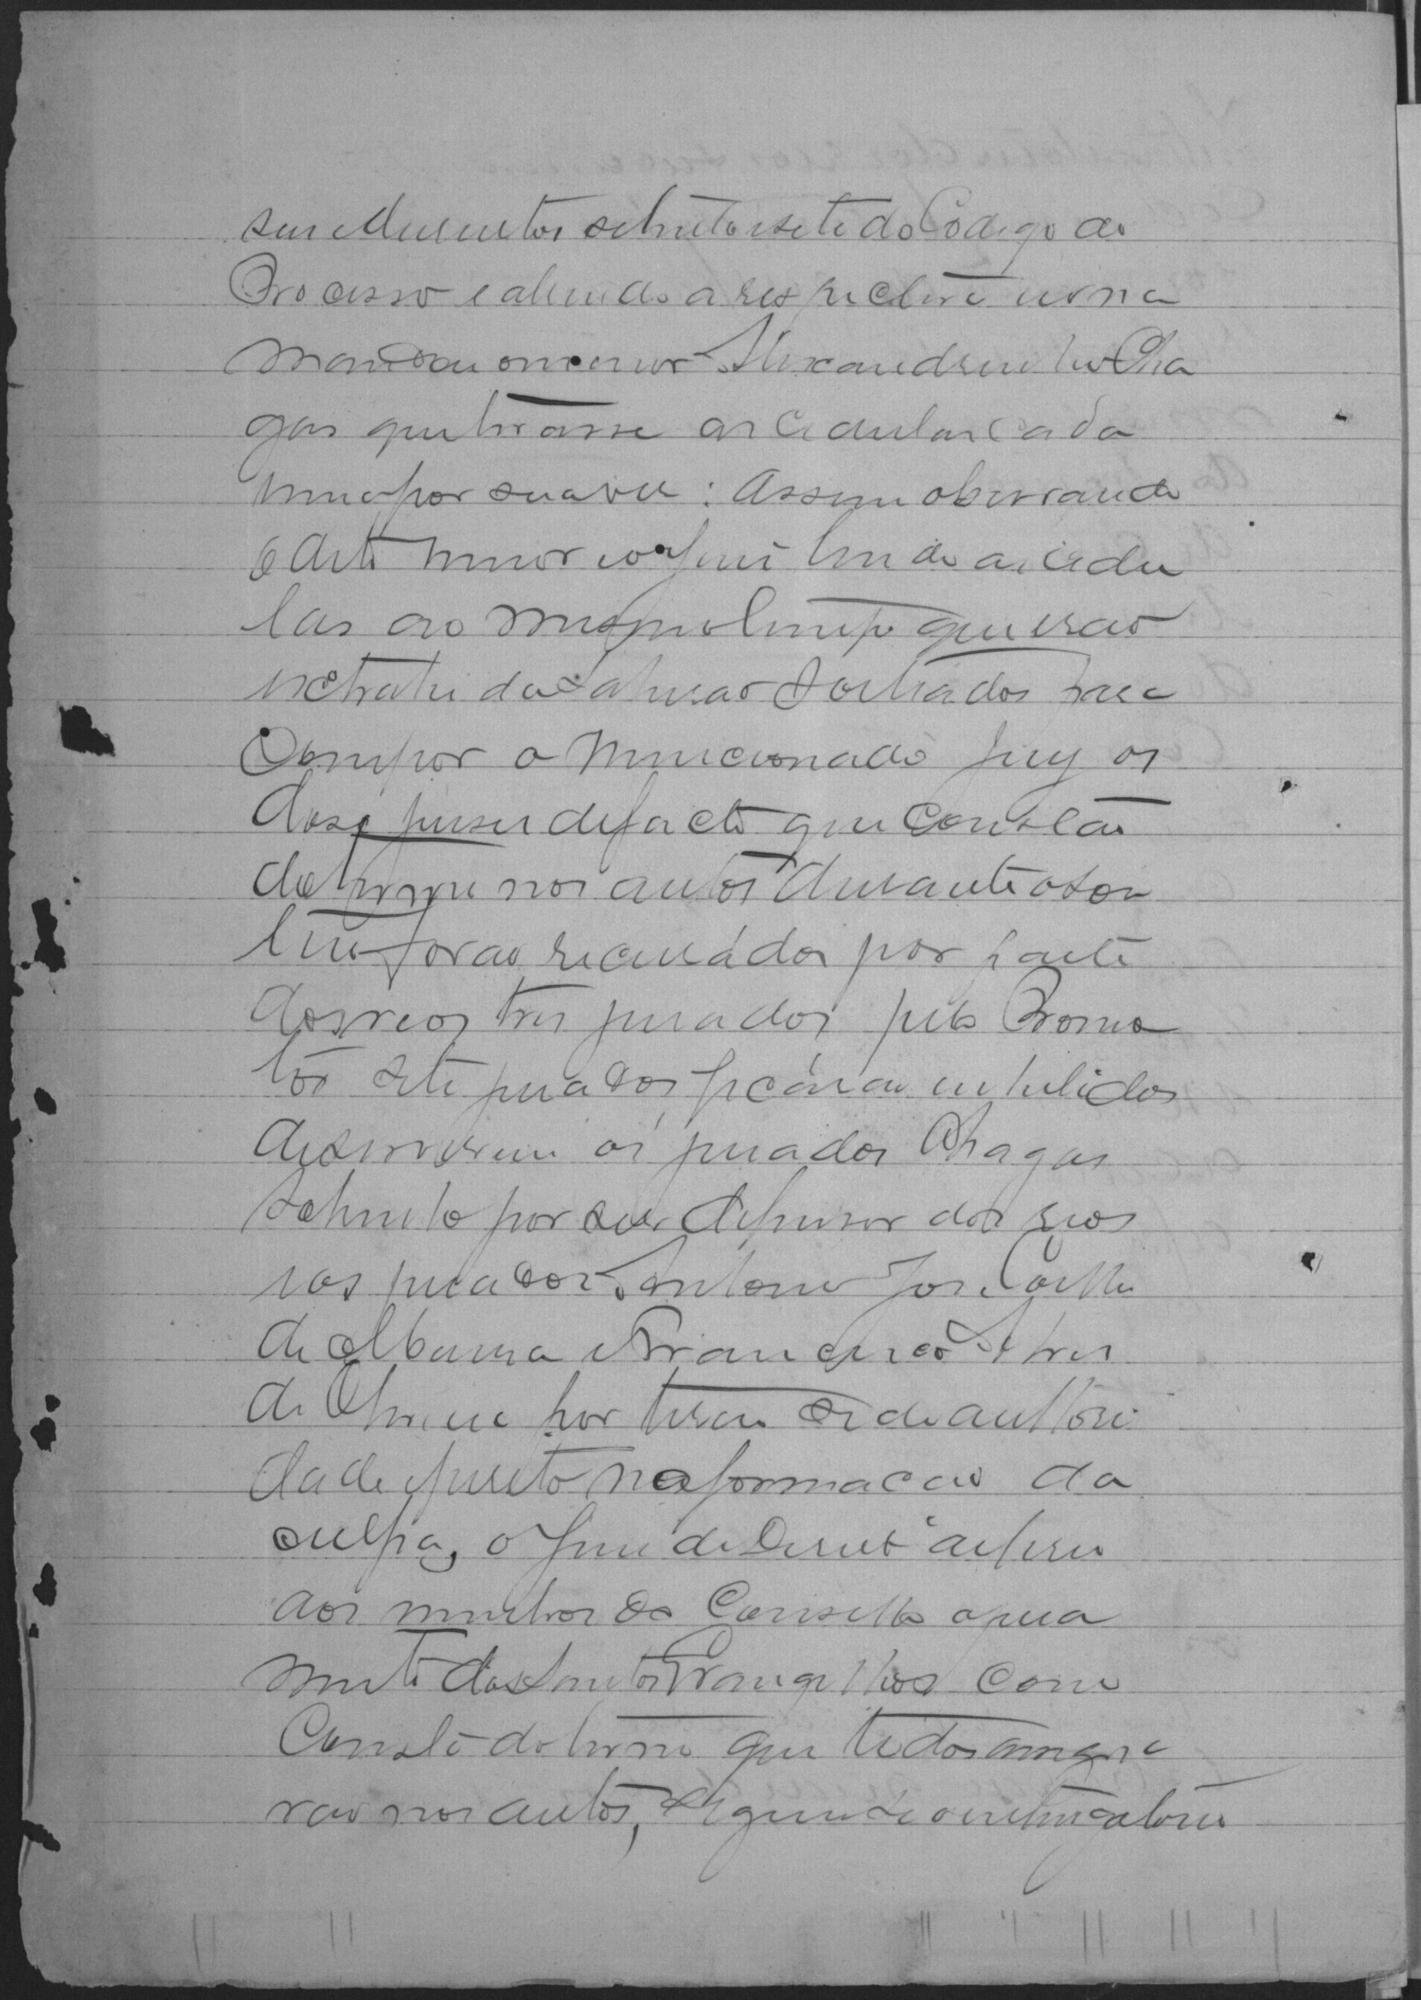 seis dusentos setenta e sete do Codigo do
Processo e abrindo a respectiva urna
mandou o menor Alexandre das Cha
gas que tirasse as cedulas cada
uma por sua vez: assim observando
o dito menor e o Juiz lendo as cedu
las ao mesmo tempo que erão
extrahidas sahirão sorteados para
compor o mencionado jury os
dose juises de facto que constão
do termo nos autos durante o sor
teio forão recusádos por parte
dos reos tres jurados pelo Promo
tor sete jurados ficárão inhibidos
de servirem os jurados Chagas
Sobrinho por ser defensor dos reos
e os jurados Antonio José Coelho
de Moura e Francisco Alves
de Oliveira por terem sido authori
dade e perito na formacão da
culpa, o Juiz de Direito deferio
aos membros do Conselho o jura
mento dos Santos Evangelhos como
Consta do termo que todos assigna
rão nos autos, seguindo o interrogatorio